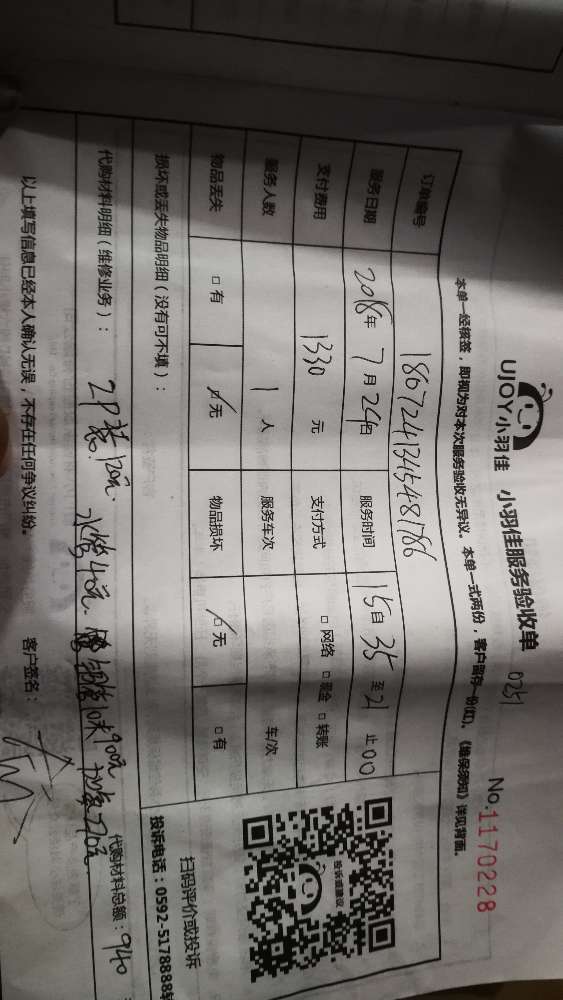 UJOY小羽佳 小羽佳服务验收单 0251 No.1170228
本单一经核签，即视为对本次服务验收无异议。本单一式两份，客户留存一份(红)，《维保须知》详见背面。
订单编号 1867241345481786
服务日期 2018年 7月 24日 服务时间 15自35至21止00
支付费用 1330 元 支付方式 □网络 □现金 □转账
服务人数 1 人 服务车次 车/次
物品丢失 □有 □无 物品损坏 □无 □有
损坏或丢失物品明细（没有可不填）：
投诉或建议
扫码评价或投诉
投诉电话：0592-5178888转
代购材料明细（维修业务）： 2P 120元 40元 10米900元 代购材料总额：940
以上填写信息已经本人确认无误，不存在任何争议纠纷。 客户签名：